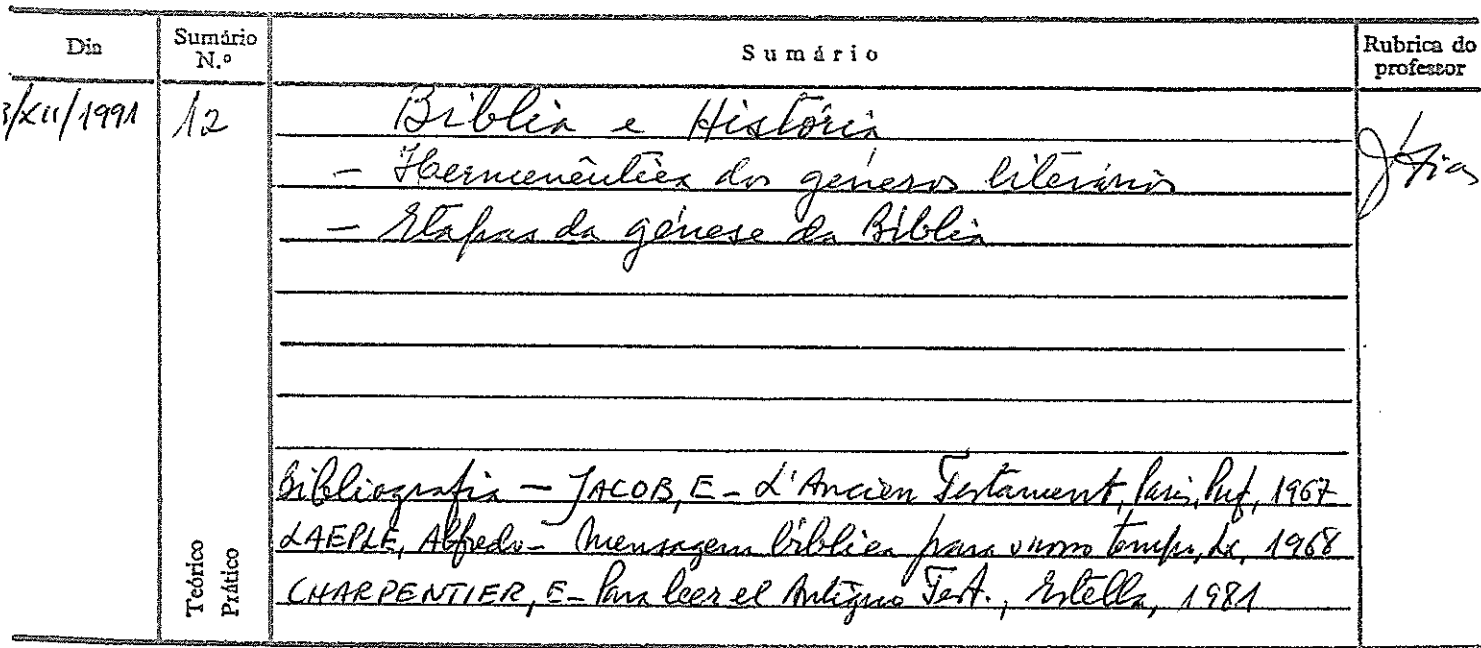 Dia Sumário N.º Sumário Rubrica do professor
3/XII/1991 12 Bíblia e História
- Hermenêutica dos géneros literários
- Etapas da génese da Bíblia
Bibliografia - JACOB, E - L'Ancien Testament, Paris, Puf, 1967
LAEPLE, Alfredo - Mensagem bíblica para o nosso tempo, Lx, 1968
CHARPENTIER, E - Para leer el Antiguo Test., Estella, 1981
Teórico
Prático